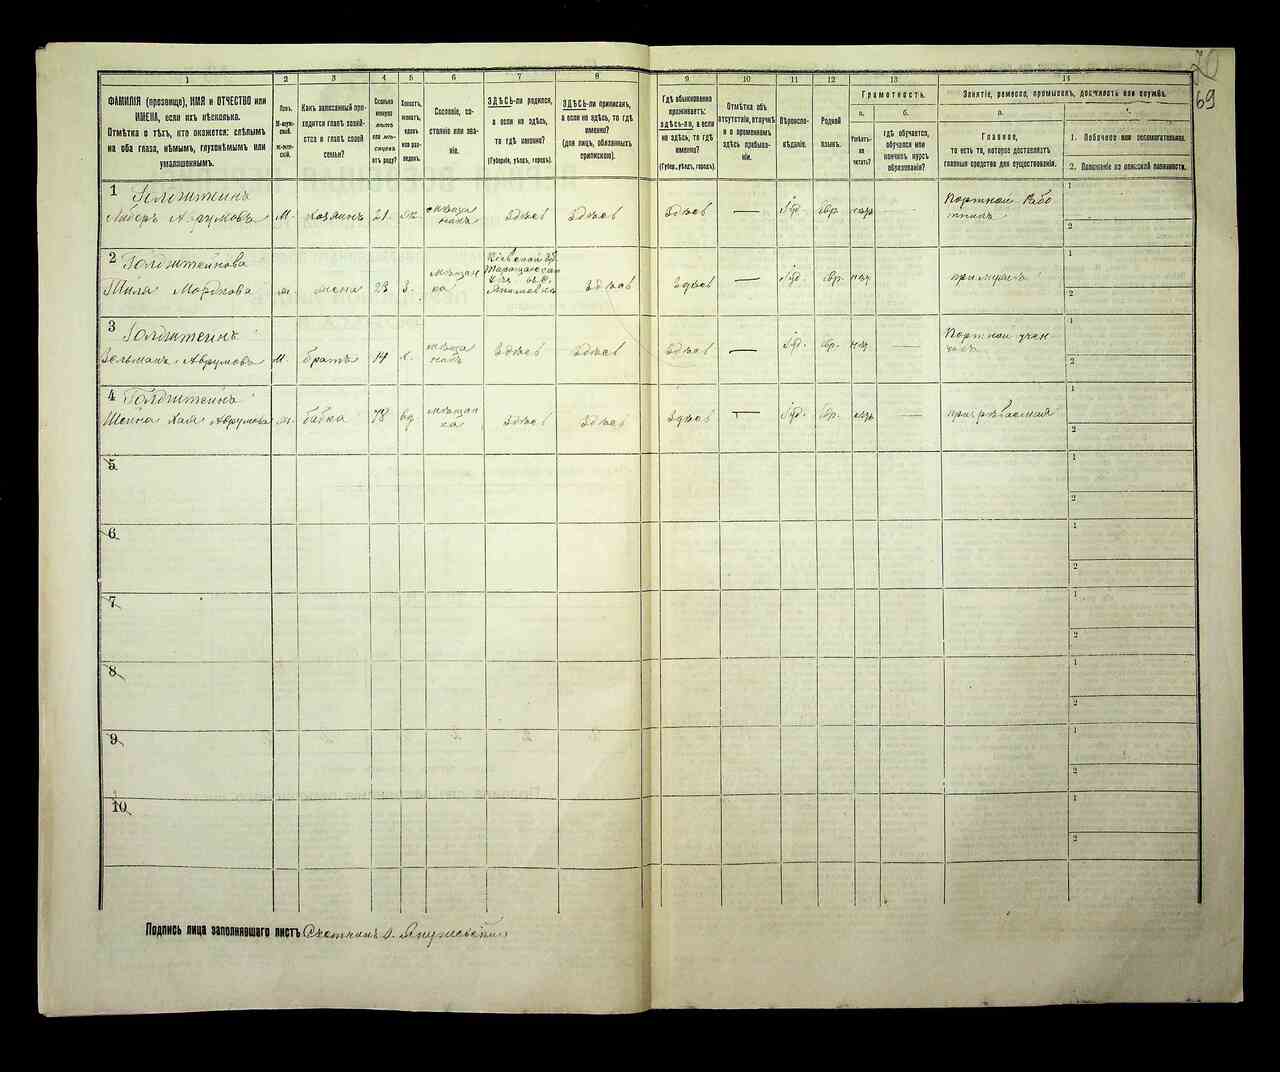 70
69
1 2 3 4 5 6 7 8 9 10 11 12 13 14
ФАМИЛІЯ (прозвище), ИМЯ и ОТЧЕСТВО или
ИМЕНА, если ихъ нѣсколько.
Отмѣтка о тѣхъ, кто окажется: слѣпымъ
на оба глаза, нѣмымъ, глухонѣмымъ или
умалишеннымъ.
Полъ.
М-мужской.
Ж-женскій.
Какъ записанный приходится главѣ хозяйства и главѣ своей
семьи?
Сколько минуло лѣтъ или мѣсяцевъ отъ роду?
Холостъ, женатъ, вдовъ или разведенъ.
Сословіе, состояніе или званіе.
ЗДѢСЬ-ли родился,
а если не здѣсь,
то гдѣ именно?
(Губернія, уѣздъ, городъ).
ЗДѢСЬ-ли приписанъ,
а если не здѣсь, то гдѣ
именно?
(для лицъ, обязанныхъ
припискою).
Гдѣ обыкновенно
проживаетъ:
здѣсь-ли, а если
не здѣсь, то гдѣ
именно?
(Губер., уѣздъ, городъ).
Отмѣтка объ
отсутствіи, отлучкѣ
и о временномъ
здѣсь пребываніи.
Вѣроисповѣданіе.
Родной
языкъ.
Грамотность.
а.
Умѣетъ-ли
читать?
б.
гдѣ обучается,
обучался или
кончилъ курсъ
образованія?
Занятіе, ремесло, промыселъ, должность или служба.
а.
Главное,
то есть то, которое доставляетъ
главныя средства для существованія.
1. Побочное или вспомогательное.
2. Положеніе по воинской повинности.
1 Голдштейнъ
Аврумовъ М. хозяинъ 21. мѣщанинъ Здѣсь Здѣсь Здѣсь — Іуд. Евр. Портной Работникъ
2 Голдштейнова
Мордкова ж. жена 23 з. мѣщанка Кіевской Губ. Таращанскаго Здѣсь Здѣсь — Іуд. Евр. при мужѣ
3 Голдштейнъ
Зельманъ Аврумовъ М. братъ 14 х. мѣщанинъ Здѣсь Здѣсь Здѣсь — Іуд. Евр. Портной ученикъ
4 Голдштейнъ
Шейна Хая Аврумова ж. бабка 78 вд мѣщанка Здѣсь Здѣсь Здѣсь — Іуд. Евр.
5
6
7
8
9
10
Подпись лица заполнявшаго листъ Счетчикъ